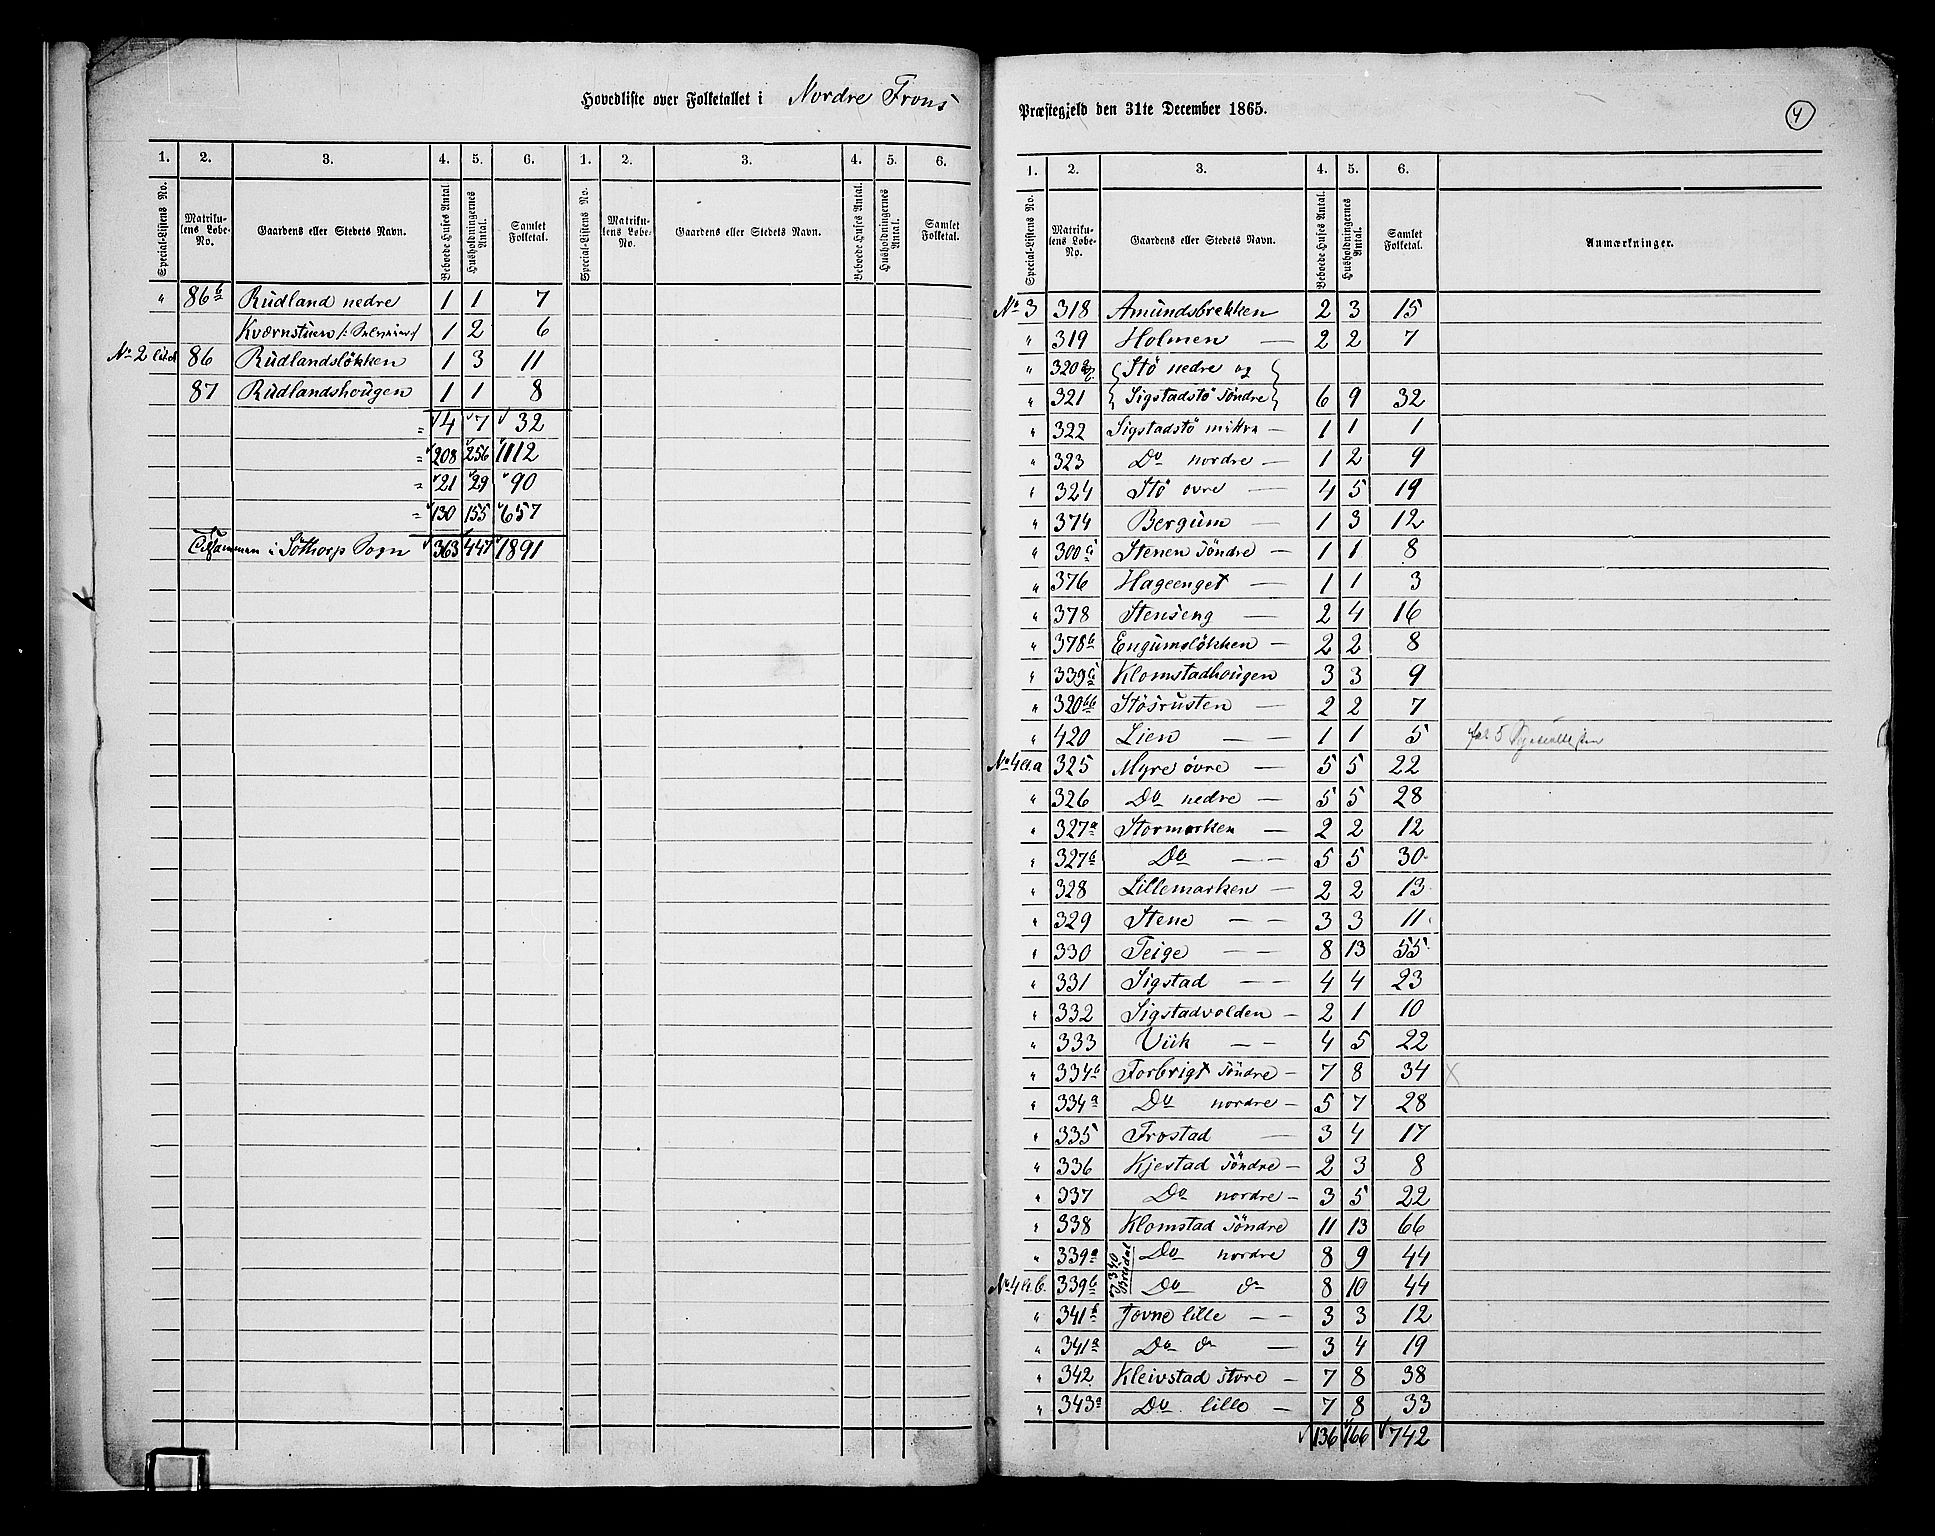 Hovedliste over Folketallet i Nordre Frons
1. 2. 3. 4. 5. 6. 1. 2. 3. 4. 5. 6.
Special-Listens No. Matrikulens Løbe-No. Gaardens eller Stedets Navn. Beboede Huses Antal Husholdningernes Antal. Samlet Folketal. Special-Listens No. Matrikulens Løbe-No. Gaardens eller Stedets Navn. Beboede Huses Antal. Husholdningernes Antal. Samlet Folketal.
" 86b Rudland nedre 1 1 7
Kværnstuen 1 2 6
No 2 86 Rudlandsløkken 1 3 11
87 Rudlandshougen 1 1 8
= 4 7 32
= 208 256 1112
= 21 29 90
= 130 155 657
Tilsammen i Søthorp Sogn 363 447 1891
Præstegjeld den 31te December 1865.
4
1. 2. 3. 4. 5. 6.
Special-Listens No. Matrikulens Løbe-No. Gaardens eller Stedets Navn. Beboede Huses Antal. Husholdningernes Antal. Samlet Folketal. Anmærkninger.
No 3 318 Amundsbrekken 2 3 15
" 319 Holmen — 2 2 7
" 320 Stø nedre og
" 321 Sigstadstø Søndre 6 9 32
" 322 Sigstadstø mittra — 1 1 1
" 323 Do nordre — 1 2 9
" 324 Stø ovre — 4 5 19
" 374 Bergum — 1 3 12
" 300 Stenen Søndre — 1 1 8
" 376 Hageenget — 1 1 3
" 378 Stenseng — 2 4 16
" 378b Engumsløkken — 2 2 8
" 339 Klomstadhougen 3 3 9
" 320bb Støsrusten — 2 2 7
" 420 Lien — — 1 1 5
No 4 325 Myre øvre — 5 5 22
" 326 Do nedre — 5 5 28
" 327a Stormorken — 2 2 12
" 327b Do — — 5 5 30
" 328 Lillemorken — 2 2 13
" 329 Stene — — 3 3 11
" 330 Teige — — 8 13 55
" 331 Sigstad — — 4 4 23
" 332 Sigstadvolden — 2 1 10
" 333 Viik — — 4 5 22
" 334b Forbrigt Søndre — 7 8 34 x
" 334a Do nordre — 5 7 28
" 335 Frostad — 3 4 17
" 336 Kjestad Søndre — 2 3 8
" 337 Do nordre — 3 5 22
" 338 Klomstad Søndre 11 13 66
" 339a Do nordre 8 9 44
No 4 339b Do do 8 10 44
340 Bredal
" 341b Tovne lille — — 3 3 12
" 341a Do do — 3 4 19
" 342 Kleivstad store — 7 8 38
" 343a Do lille — 7 8 33
136 166 742